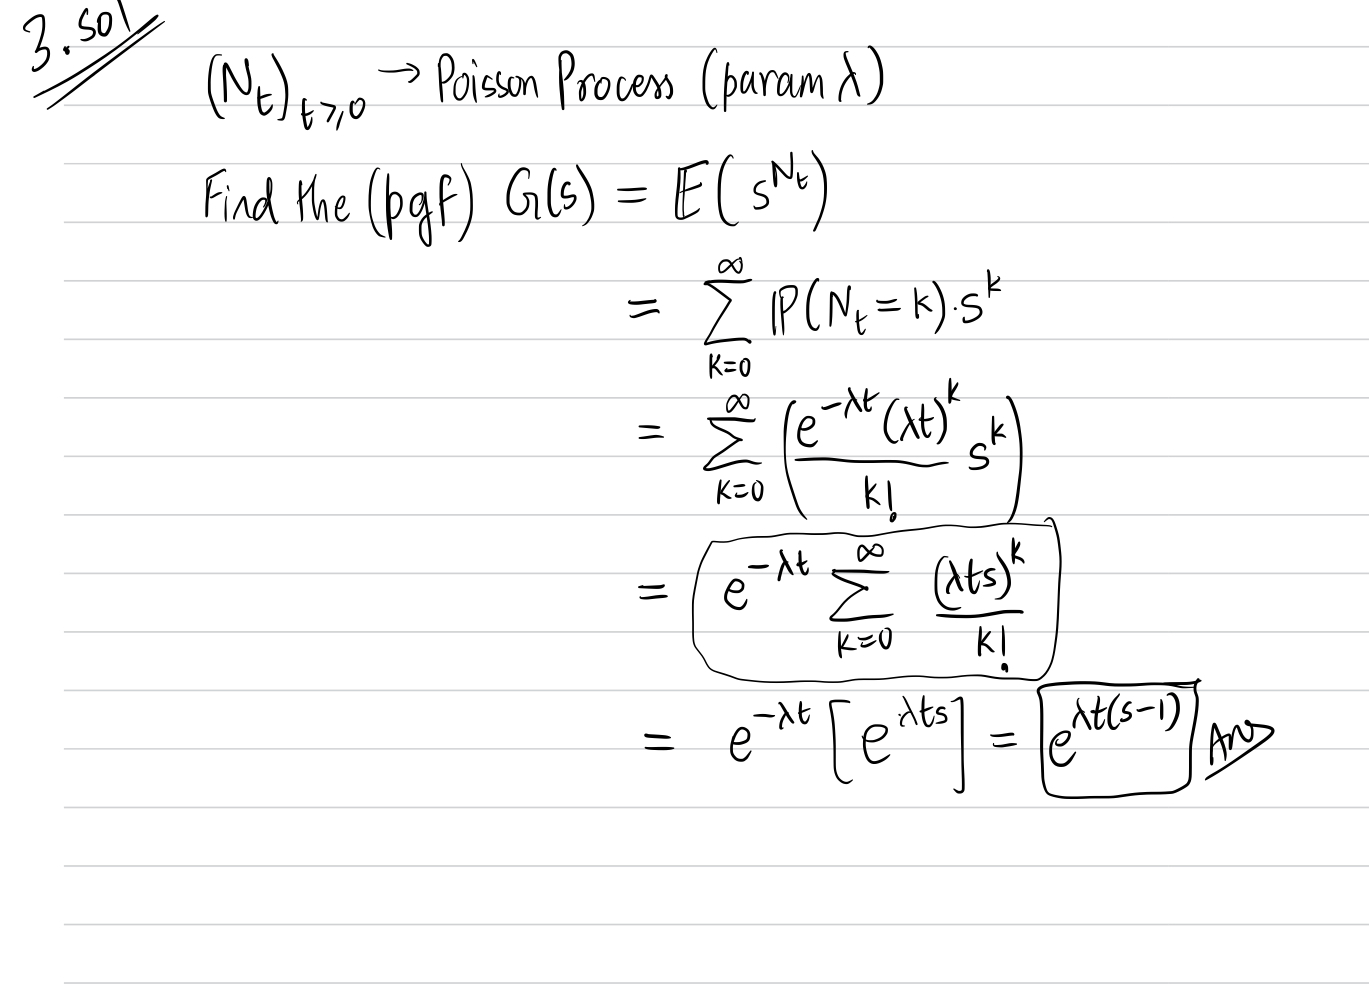 3. sol
(N_t)_{t≥0} → Poisson Process (param λ)
Find the (pgf) G(s) = E(s^{N_t})
= ∑_{k=0}^{∞} ℙ(N_t = k)·s^k
= ∑_{k=0}^{∞} (e^{-λt}(λt)^k / k! s^k)
= e^{-λt} ∑_{k=0}^{∞} (λts)^k / k!
= e^{-λt} [e^{λts}] = e^{λt(s-1)} Ans